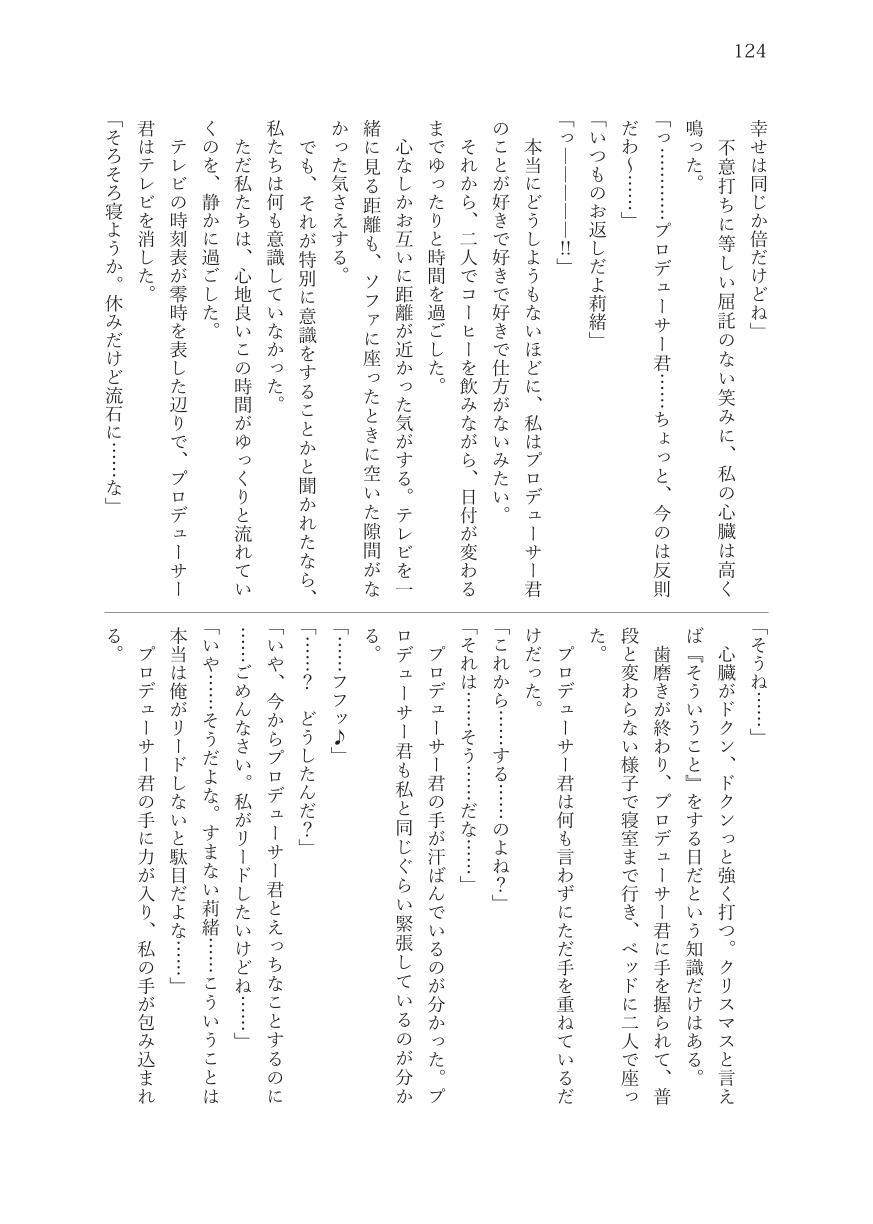 124
幸せは同じか倍だけどね」
　不意打ちに等しい屈託のない笑みに、私の心臓は高く
鳴った。
「っ…………プロデューサー君……ちょっと、今のは反則
だわ～……」
「いつものお返しだよ莉緒」
「っ―――――!!」
　本当にどうしようもないほどに、私はプロデューサー君
のことが好きで好きで好きで仕方がないみたい。
　それから、二人でコーヒーを飲みながら、日付が変わる
までゆったりと時間を過ごした。
　心なしかお互いに距離が近かった気がする。テレビを一
緒に見る距離も、ソファに座ったときに空いた隙間がな
かった気さえする。
　でも、それが特別に意識をすることかと聞かれたなら、
私たちは何も意識していなかった。
　ただ私たちは、心地良いこの時間がゆっくりと流れてい
くのを、静かに過ごした。
　テレビの時刻表が零時を表した辺りで、プロデューサー
君はテレビを消した。
「そろそろ寝ようか。休みだけど流石に……な」
「そうね……」
　心臓がドクン、ドクンっと強く打つ。クリスマスと言え
ば『そういうこと』をする日だという知識だけはある。
　歯磨きが終わり、プロデューサー君に手を握られて、普
段と変わらない様子で寝室まで行き、ベッドに二人で座っ
た。
　プロデューサー君は何も言わずにただ手を重ねているだ
けだった。
「これから……する……のよね？」
「それは……そう……だな……」
　プロデューサー君の手が汗ばんでいるのが分かった。プ
ロデューサー君も私と同じぐらい緊張しているのが分か
る。
「……フフッ♪」
「……？　どうしたんだ？」
「いや、今からプロデューサー君とえっちなことするのに
……ごめんなさい。私がリードしたいけどね……」
「いや……そうだよな。すまない莉緒……こういうことは
本当は俺がリードしないと駄目だよな……」
　プロデューサー君の手に力が入り、私の手が包み込まれ
る。